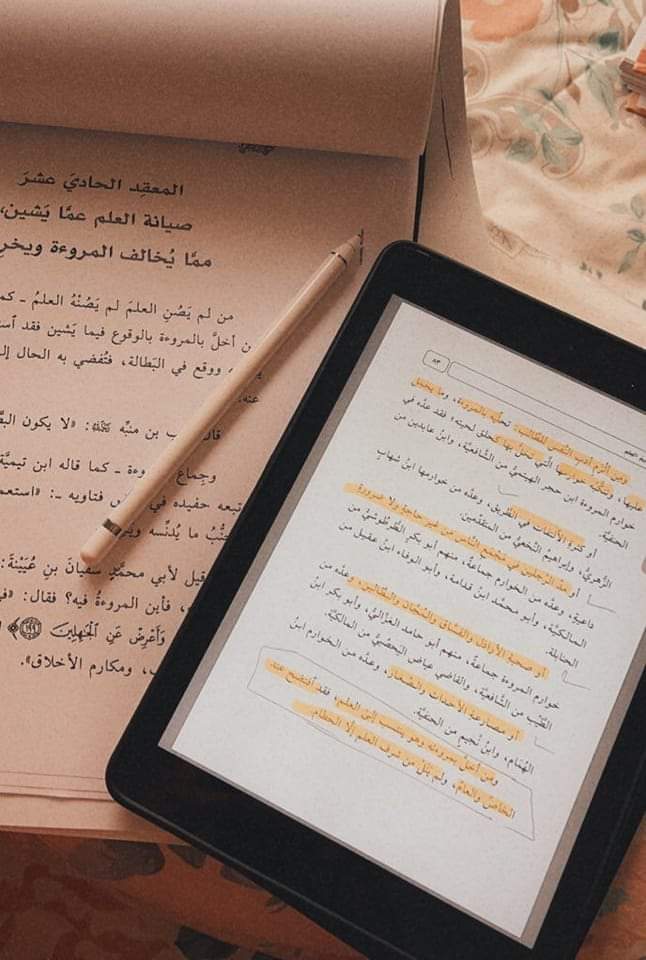 المعقِد الحاديَ عشَرَ
صيانة العلم عمَّا يَشين،
ممَّا يُخالف المروءة ويخرِ
من لم يَصُنِ العلمَ لم يَصُنْهُ العلمُ ـ كما
أخلَّ بالمروءة بالوقوع فيما يَشين فقد
ووقع في البَطالة، فتُفضي به الحال إلى
عنه.
بن منبِّه: «لا يكون
وجِماع ـ كما قاله ابن تيميَّة
تبعه حفيده في فتاويه ـ: «استعم
ما يُدنِّسه
قيل لأبي محمَّدٍ سفيانَ بنِ عُيَيْنةَ:
، فأين المروءةُ فيه؟ فقال: «في
وَأَعْرِضْ عَنِ الْجَاهِلِينَ ١٩٩
، ومكارم الأخلاق».
٨٣
ومن ألزم أدب النَّفس للطَّالب: تحلِّيه بالمروءة، وما يحمل
عليها، وتنكُّبه خوارمها الَّتي تخلُّ بها كحلق لحيته؛ فقد عدَّه في
خوارم المروءة ابن حجر الهيتميُّ من الشَّافعيَّة، وابنُ عابدين من
الحنفيَّة.
أو كثرة الالتفات في الطَّريق، وعدَّه من خوارمها ابنُ شهابٍ
الزُّهريُّ، وإبراهيمُ النَّخعيُّ من المتقدِّمين.
أو مدِّ الرِّجلين في مجمع النَّاس من غير حاجةٍ ولا ضرورةٍ
داعيةٍ، وعدَّه من الخوارم جماعةٌ، منهم أبو بكرٍ الطُّرطُوشيُّ من
المالكيَّة، وأبو محمَّد ابنُ قدامة، وأبو الوفاء ابنُ عقيل من
الحنابلة.
أو صحبةِ الأراذل والفسَّاق والمُجَّان والبطَّالين، وعدَّه من
خوارم المروءة جماعةٌ، منهم أبو حامد الغزاليُّ، وأبو بكر ابنُ
الطَّيِّب من الشَّافعيَّة، والقاضي عياض اليَحصُبيُّ من المالكيَّة.
أو مصارعة الأحداث والصِّغار، وعدَّه من الخوارم ابنُ
الهُمَام، وابنُ نُجيمٍ من الحنفيَّة.
ومن أخلَّ بمروءته وهو ينتسب إلى العلم، فقد افتضح عند
الخاصِّ والعامِّ، ولم يَنَلْ من شرف العلم إلَّا الحطام.